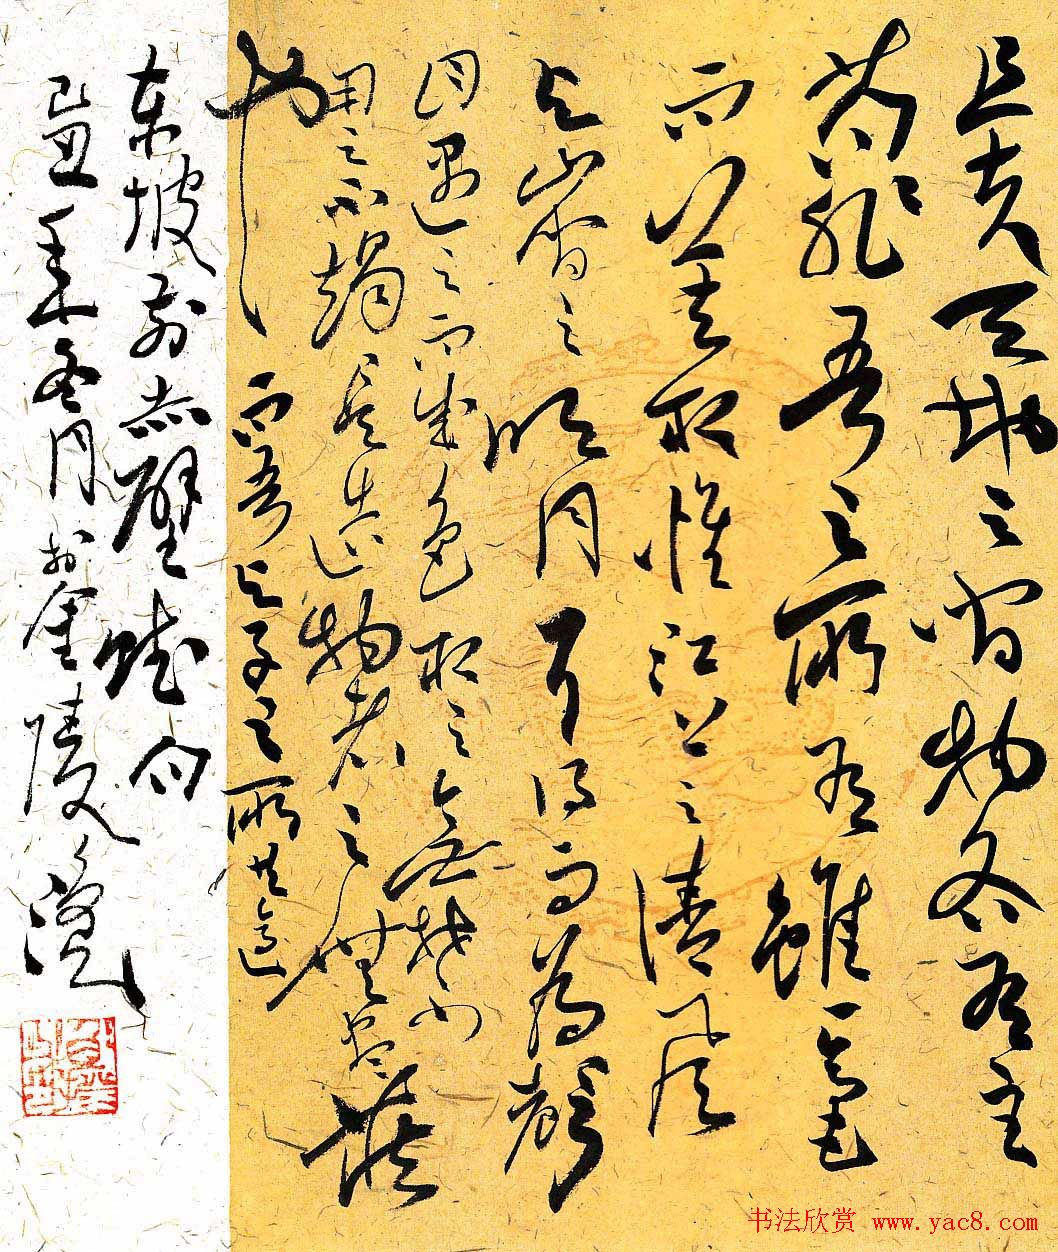 且夫天地之間物各有主
苟非吾之所有雖一毫
而莫取惟江上之清風
与山間之明月耳得而為聲
目遇之而成色取之無禁
用之不竭是造物者之無盡藏
也而吾与子之所共適
东坡前赤壁賦句
己丑年冬月於金陵
书法欣赏 www.yac8.com